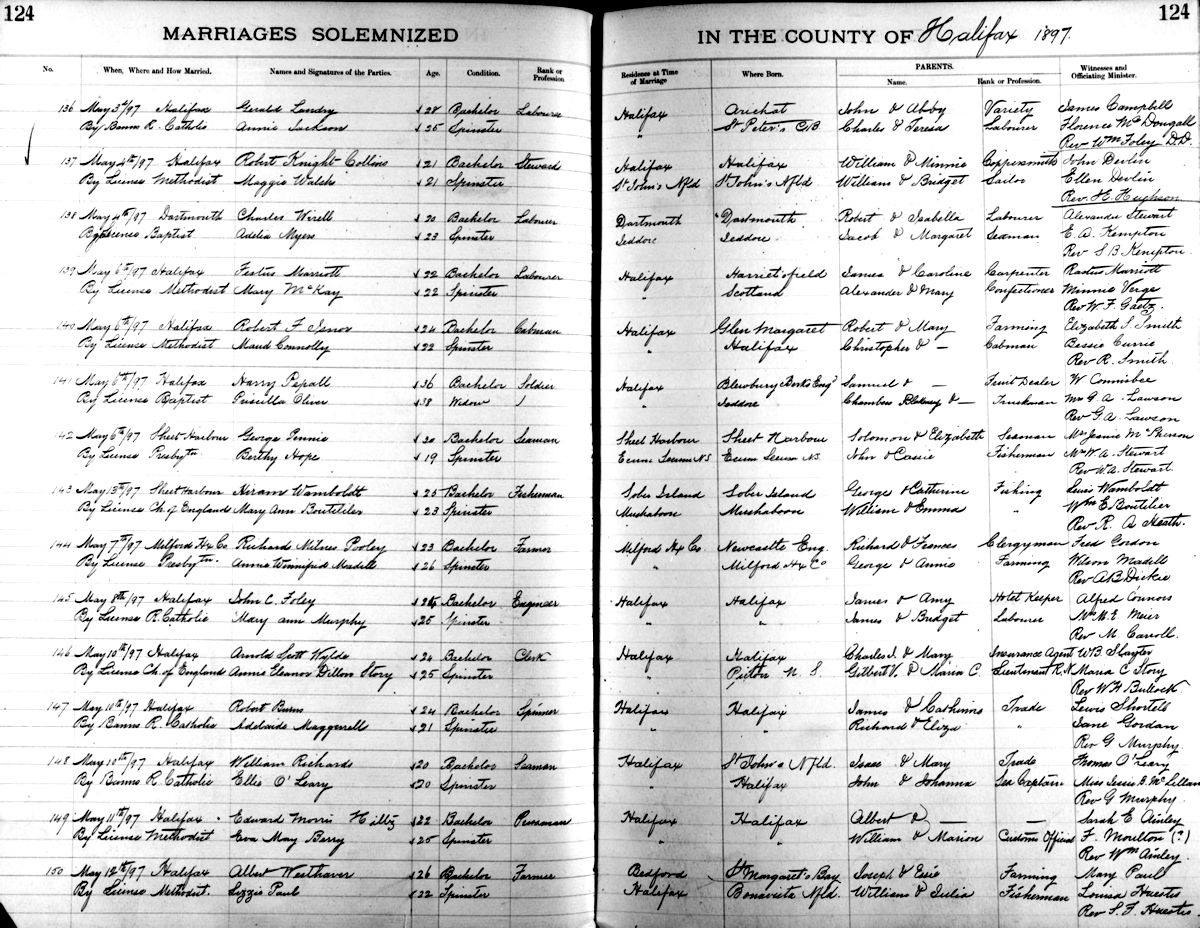 124
124
MARRIAGES SOLEMNIZED
IN THE COUNTY OF Halifax 1897.
No. When, Where and How Married. Names and Signatures of the Parties. Age. Condition. Rank or Profession Residence at Time of Marriage Where Born. PARENTS. Name. Rank or Profession. Witnesses and Officiating Minister.
136 May 3d/97 Halifax Gerald Landry 28 Bachelor Labourer Halifax Arichat John & Abby Variety James Campbell
By Banns R. Catholic Annie Jackson 25 Spinster " St Peter's C.B. Charles & Teresa Labourer Florence McDougall
Rev Wm Foley D.D.
137 May 4th/97 Halifax Robert Knight Collins 21 Bachelor Steward Halifax Halifax William & Minnie Coppersmith John Devlin
By License Methodist Maggie Walsh 21 Spinster St John's Nfld St John's Nfld William & Bridget Sailor Ellen Devlin
Rev. H.
138 May 4th/97 Dartmouth Charles Wirell 20 Bachelor Labourer Dartmouth Dartmouth Robert & Isabella Labourer Alexander Stewart
By License Baptist Adelia Myers 23 Spinster Jeddore Jeddore Jacob & Margaret Seaman E. A. Kempton
Rev S B Kempton
139 May 6th/97 Halifax Festus Marriott 22 Bachelor Labourer Halifax Harrietsfield James & Caroline Carpenter Rastus Marriott
By License Methodist Mary McKay 22 Spinster " Scotland Alexander & Mary Confectioner Minnie Verge
Rev W. F. Gaetz.
140 May 6th/97 Halifax Robert F 24 Bachelor Cabman Halifax Glen Margaret Robert & Mary Farming Elizabeth S. Smith
By License Methodist Maud Connolley 22 Spinster " Halifax Christopher & — Cabman Bessie Currie
Rev R. Smith
141 May 6th/97 Halifax Harry Pepall 36 Bachelor Soldier Halifax Blewbury Berks Engd Samuel & — Fruit Dealer W Connisbee
By License Baptist Priscilla Oliver 38 Widow / " Jeddore Chambers & — Truckman Mrs G. A. Lawson
Rev G. A. Lawson
142 May 6th/97 Sheet Harbour George Pinnie 30 Bachelor Seaman Sheet Harbour Sheet Harbour Solomon & Elizabeth Seaman Mrs Jennie
By License Presbytn. Berthy Hope 19 Spinster Ecum Secum N.S. Ecum Secum N.S. John & Cassie Fisherman Mrs W. A. Stewart
Rev W. A. Stewart
143 May 13th/97 Sheet Harbour Hiram Wamboldt 25 Bachelor Fisherman Sober Island Sober Island George & Catherine Fishing Lewis Wamboldt
By License Ch. of England Mary Ann Boutilier 23 Spinster Mushaboon Mushaboon William & Emma " Wm E Boutilier
Rev R. A Heath.
144 May 7th/97 Milford Hx Co Richard Milnes Pooley 23 Bachelor Farmer Milford Hx Co. Newcastle Eng. Richard & Frances Clergyman Fred Gordon
By License Presbytn. Annie Winnifred Madell 26 Spinster " Milford Hx Co George & Annie Farming Wilson Madell
Rev A B Dickie
145 May 8th/97 Halifax John C. Foley 26 Bachelor Engineer Halifax Halifax James & Amy Hotel Keeper Alfred Connors
By License R. Catholic Mary Ann Murphy 25 Spinster " " James & Bridget Labourer M. E. Meier
Rev M. Carroll.
146 May 10th/97 Halifax Arnold Scott Wylde 24 Bachelor Clerk Halifax Halifax Charles I. & Mary Insurance Agent W B Slayter
By License Ch. of England Annie Eleanor Dillon Story 25 Spinster " Pictou N S Gilbert V. & Maria C. Lieutenant R. N Maria C Story
Rev W H Bullock
147 May 11th/97 Halifax Robert Burns 24 Bachelor Spinner Halifax Halifax James & Catherine Trade Lewis Shortell
By Banns R. Catholic Adelaide Maggerrell 21 Spinster " " Richard & Eliza " Jane Gordan
Rev G Murphy
148 May 10th/97 Halifax William Richards 20 Bachelor Seaman Halifax St John's Nfld. Isaac & Mary Trade Thomas O'Leary
By Banns R. Catholic Ellie O'Leary 20 Spinster " Halifax John & Johanna Sea Captain Miss Jessie B. McLellan
Rev G Murphy
149 May 11th/97 Halifax Edward Morris Hiltz 22 Bachelor Pressman Halifax Halifax Albert & — — Sarah E. Ainley
By License Methodist Eva May Berry 25 Spinster " " William & Marion Customs Official F. Moulton (?)
Rev Wm Ainley.
150 May 12th/97 Halifax Albert Westhaver 26 Bachelor Farmer Bedford St Margaret's Bay Joseph & Farming Mary Paul
By License Methodist. Lizzie Paul 22 Spinster Halifax Bonavista Nfld. William & Julia Fisherman Louisa Huestis
Rev S. F. Huestis